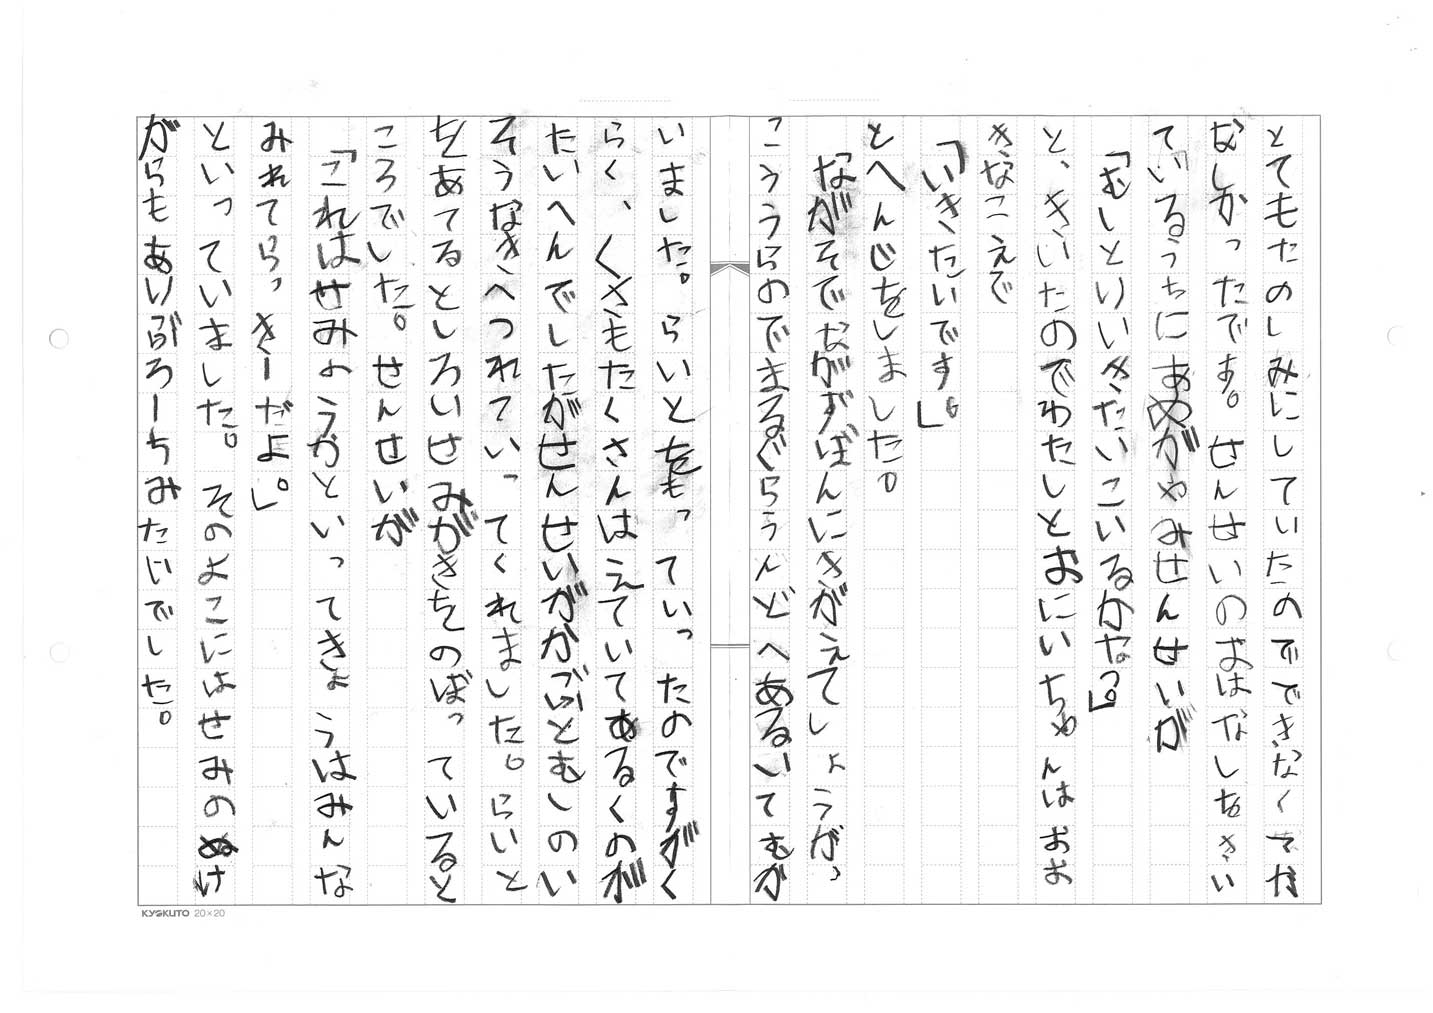 とてもたのしみにしていたのでできなくてか
なしかったです。せんせいのおはなしをきい
ているうちにおめがややみせんせいが
「むしとりいきたいこいるかなっ。」
と、きいたのでわたしとおにいちゃんはおお
きなこえで
「いきたいです。」
とへんじをしました。
「ながそでながずぼんにきがえてしょうがっ
こううらのでまるぐらうんどへあるいてむか
いました。らいとをもっていったのですがく
らく、くさもたくさんはえていてあるくのが
たいへんでしたがせんせいががごっとむしのい
そうなきへつれていってくれました。らいと
をあてるとしろいせみがきをのぼっていると
ころでした。せんせいが
「これはせみょうかといってきょうはみんな
みれてらっきーだよ。」
といっていました。そのよこにはせみのぬけ
がらもありぶろーちみたいでした。
KYOKUTO 20×20